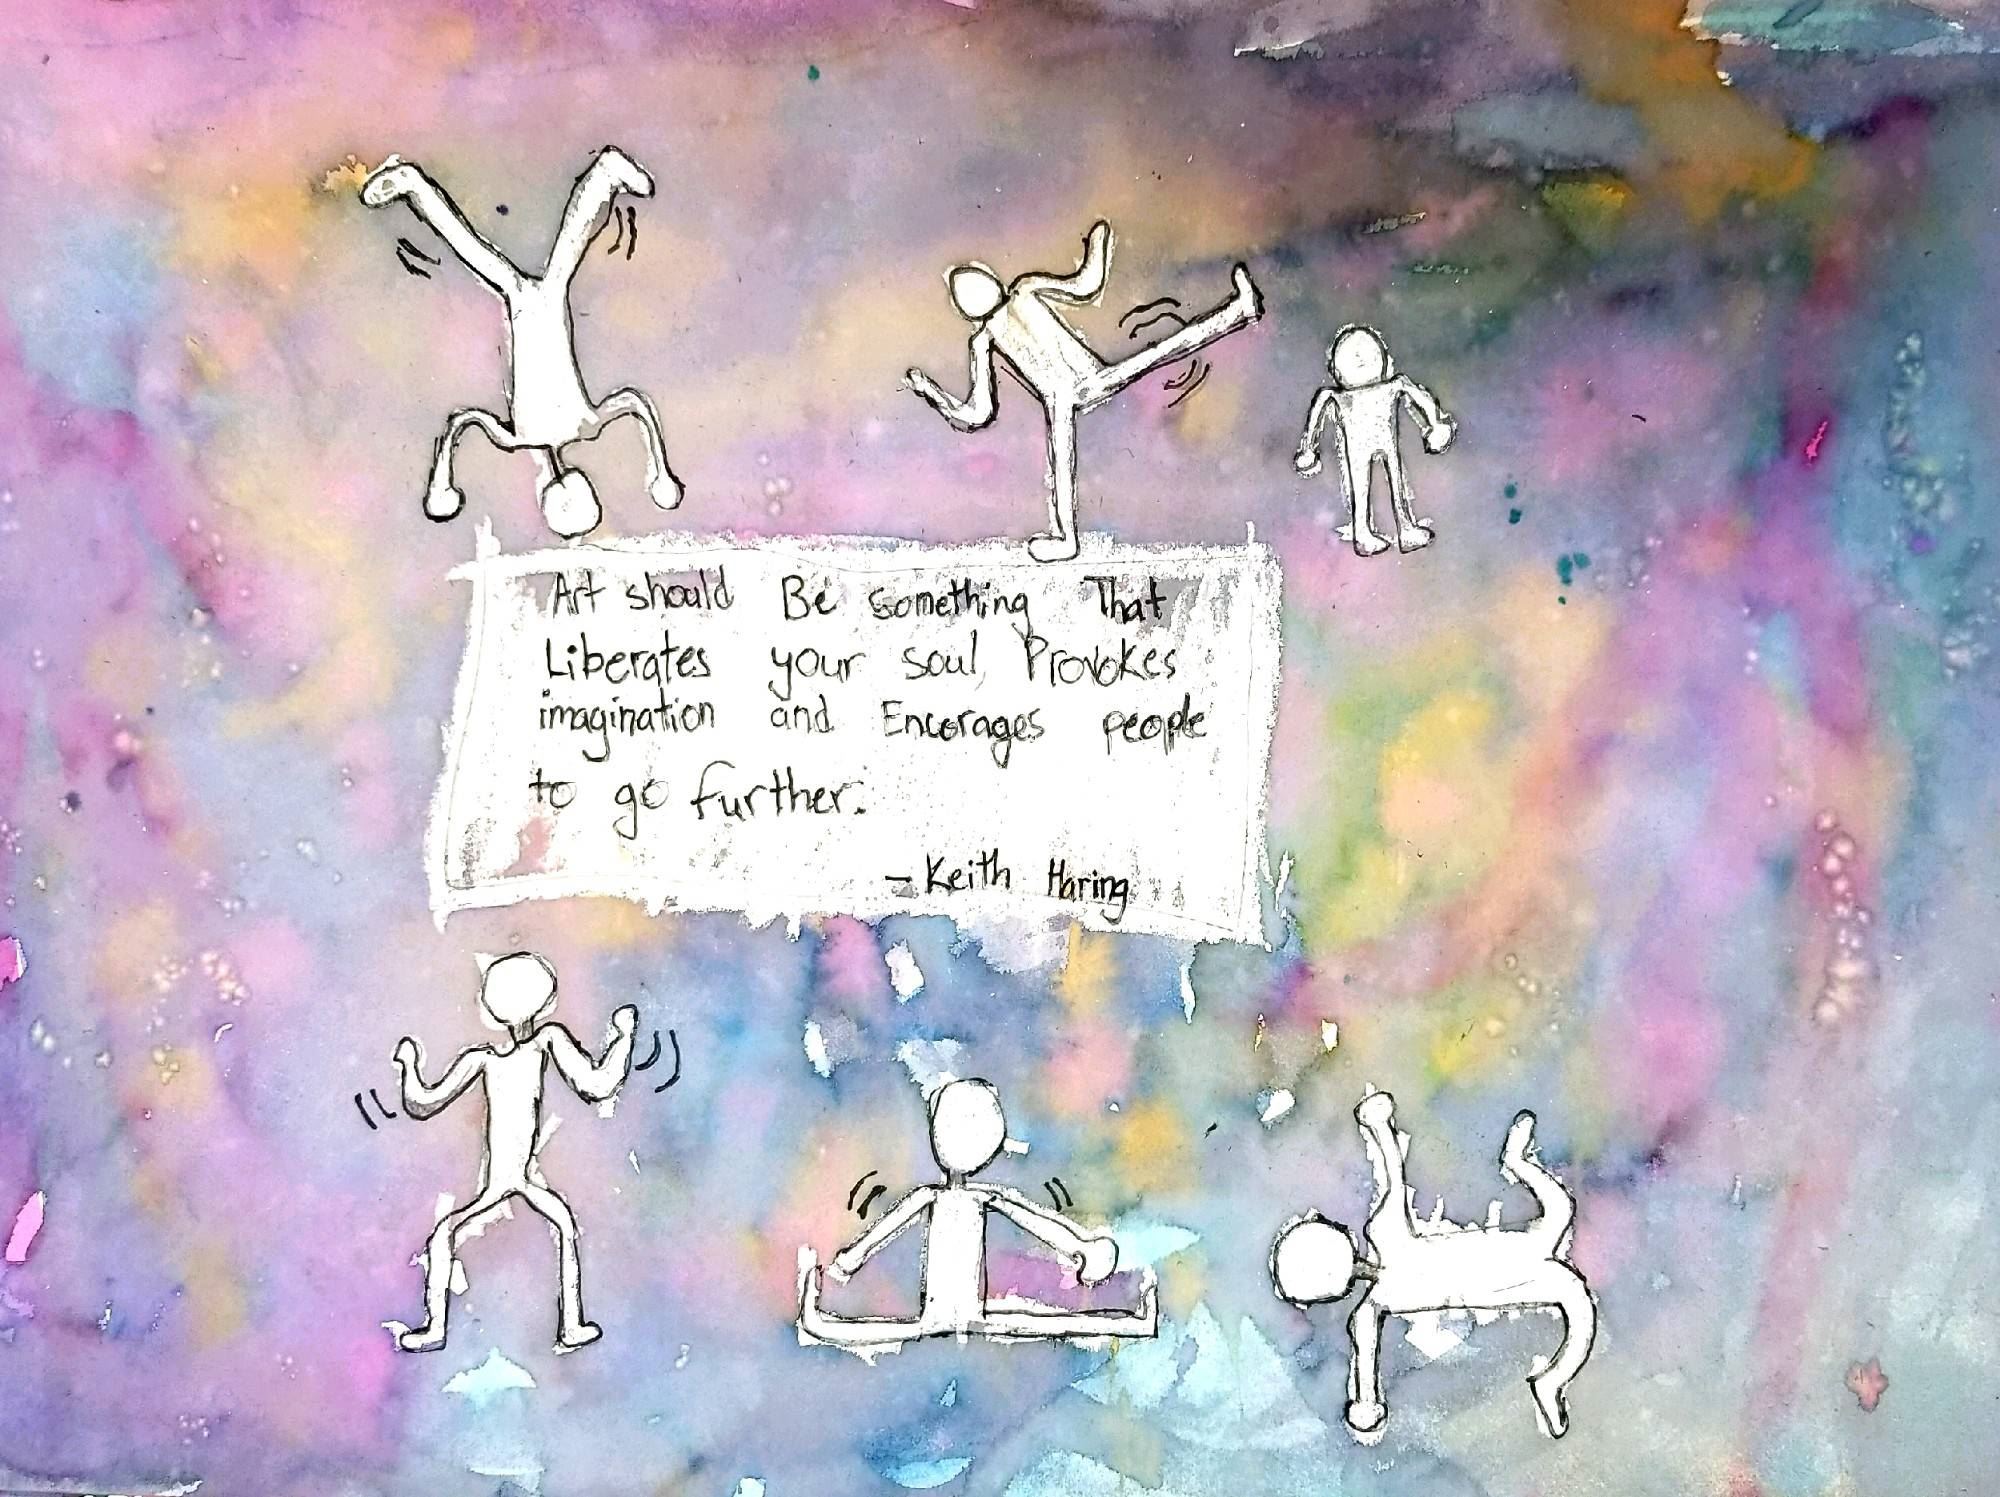 Art should Be something That
Liberates your soul, Provokes
imagination and Encorages people
to go further.
- Keith Haring